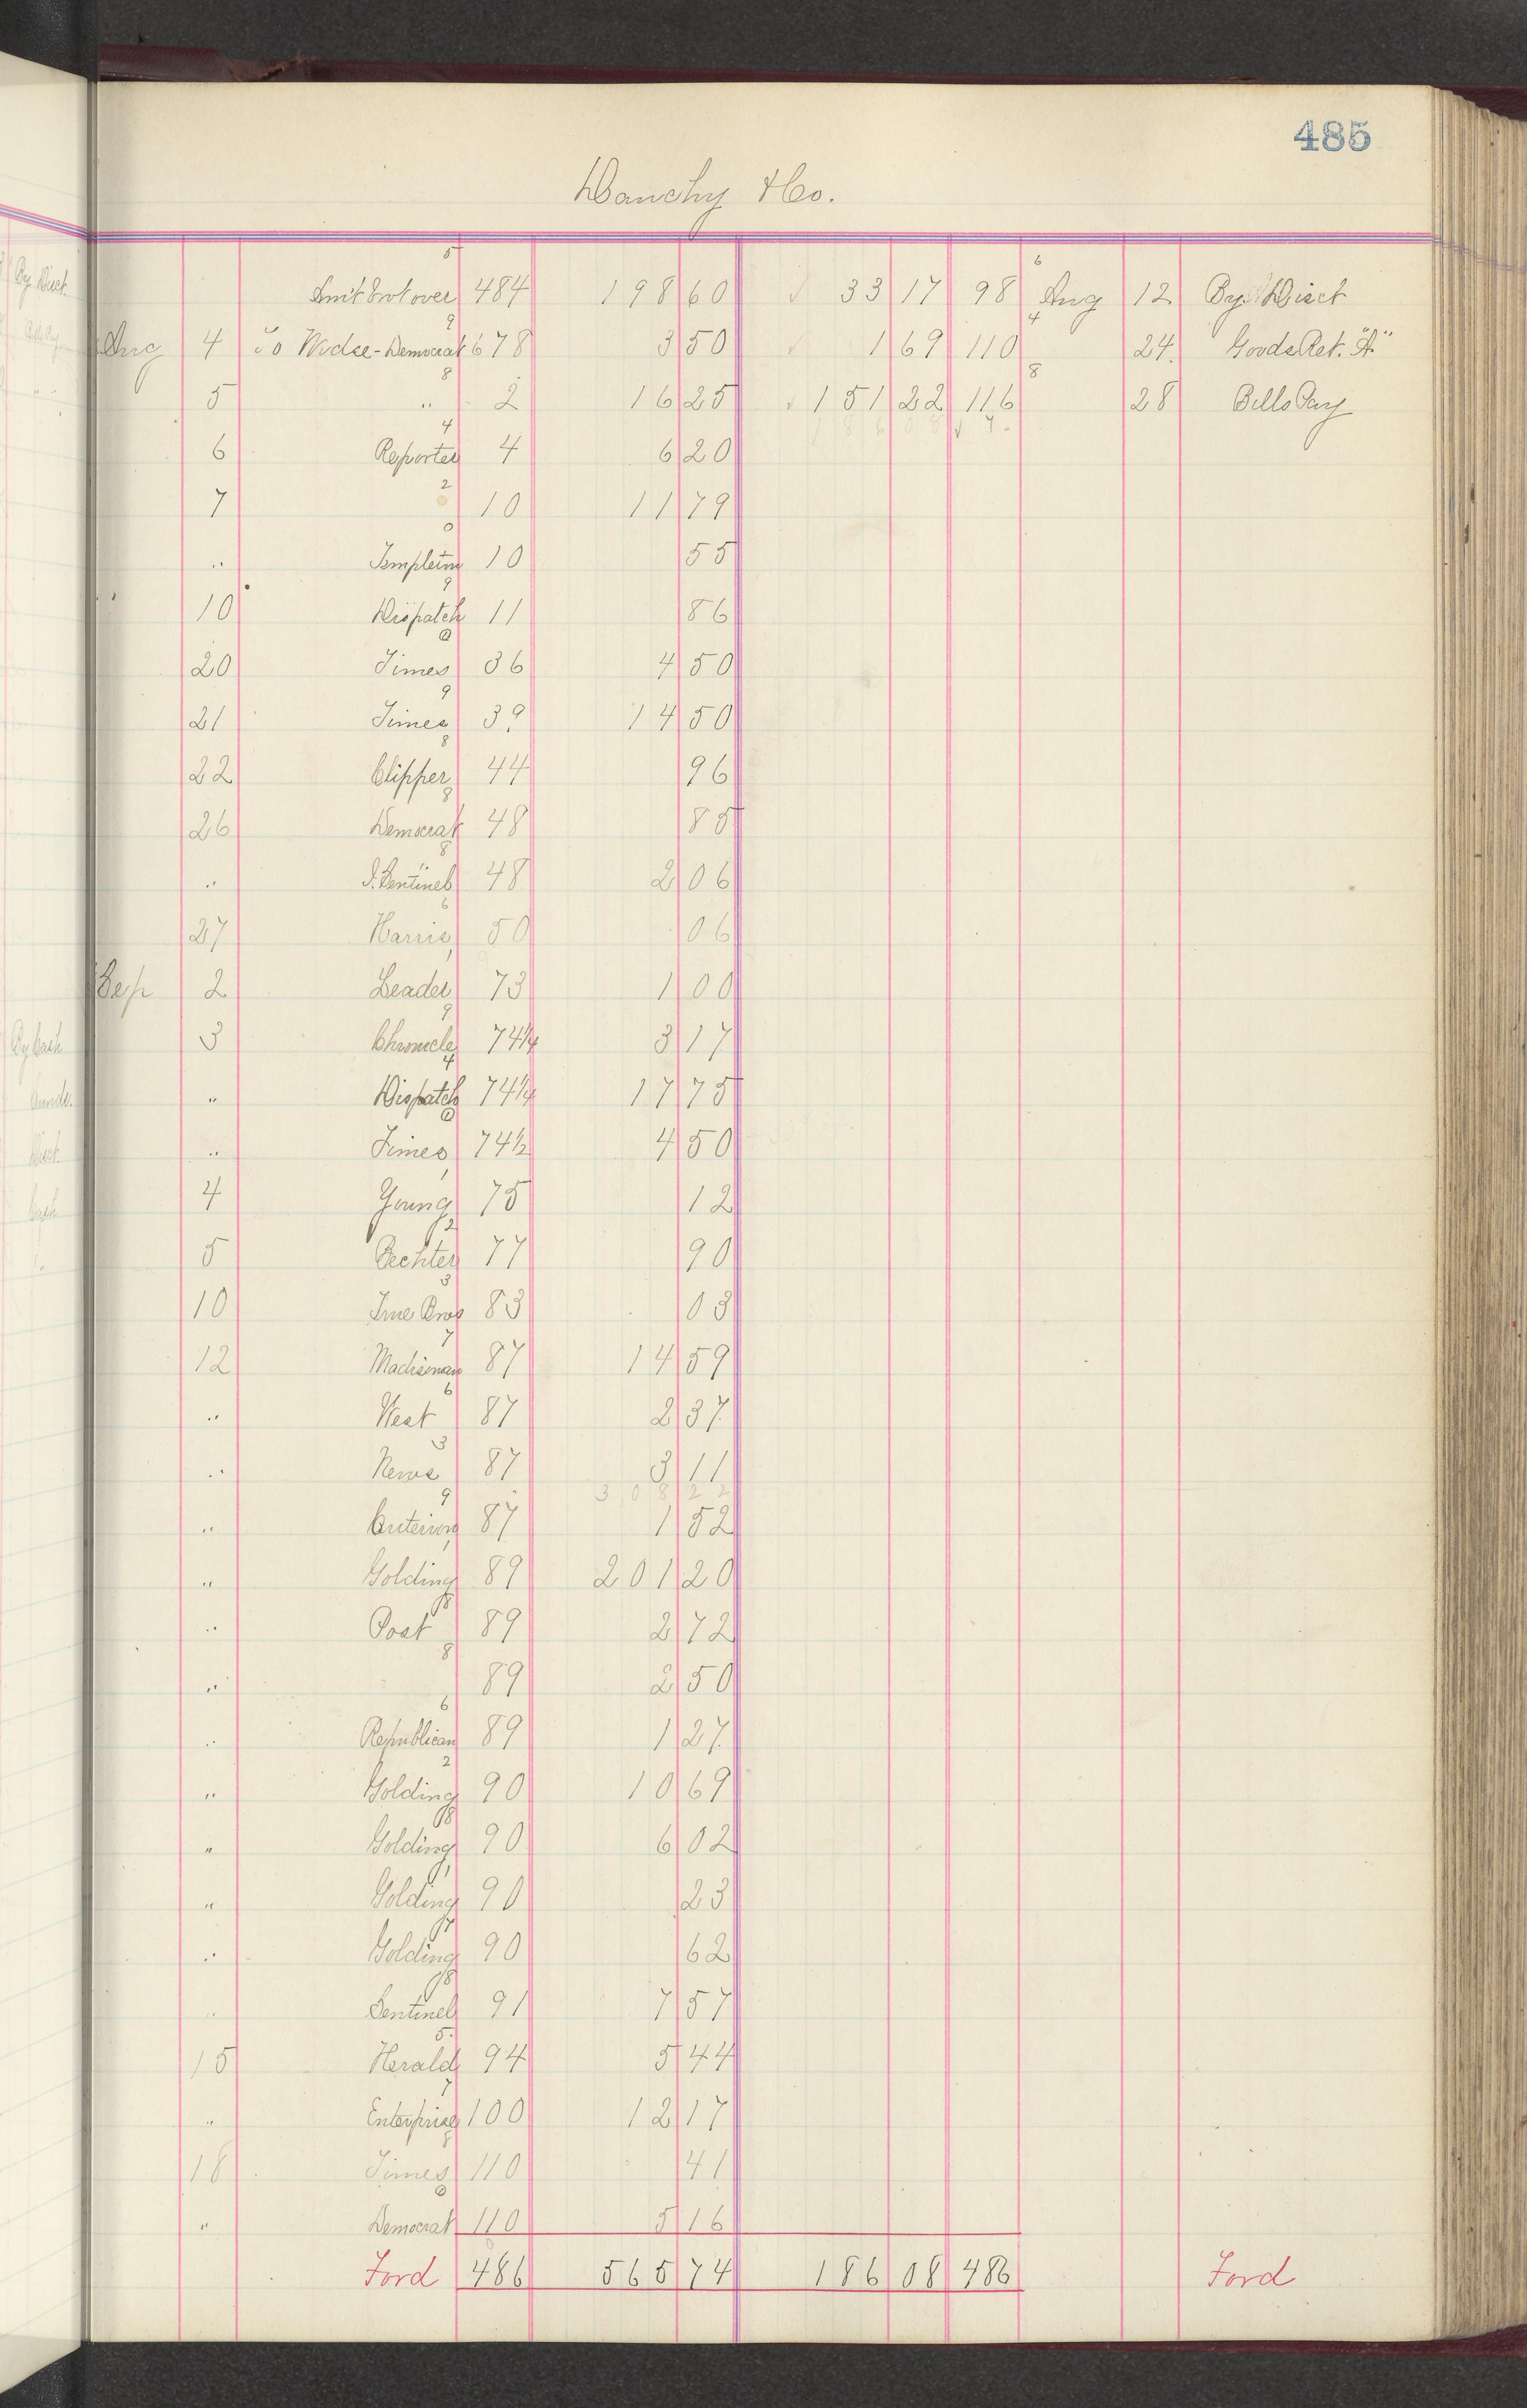 485
Dauchy & Co.
5 6
Amt Brot over 484 198 60 √ 33 17 98 Aug 12 By Disct
9 4
Aug 4 To Mdse - Democrat 678 3 50 √ 1 69 110 24 Goods Ret. "A"
8 8
5 " 2 16 25 √ 151 22 116 28 Bills Pay
4 186 08
6 Reporter 4 6 20
2
7 10 11 79
0
" Templeton 10 55
9
10 Dispatch 11 86
0
20 Times 36 4 50
9
21 Times 39 14 50
8
22 Clipper 44 96
8
26 Democrat 48 85
8
" S. Sentinel 48 2 06
6
27 Harris 50 06
Sep 2 Leader 73 1 00
9
3 Chronicle 74¼ 3 17
4
" Dispatch 74¼ 17 75
0
" Times 74½ 4 50
4 Young 75 12
2
5 Pechter 77 90
3
10 True Bros 83 03
7
12 Madisonian 87 14 59
6
" West 87 2 37
3
" News 87 3 11
9 308 22
" Criterion 87 1 52
" Golding 89 201 20
8
" Post 89 2 72
8
" 89 2 50
6
" Republican 89 1 27
2
" Golding 90 10 69
8
" Golding 90 6 02
1
" Golding 90 23
7
" Golding 90 62
8
" Sentinel 91 7 57
5
15 Herald 94 5 44
7
" Enterprise 100 12 17
8
18 Times 110 41
0
" Democrat 110 5 16
Ford 486 565 74 186 08 486 Ford